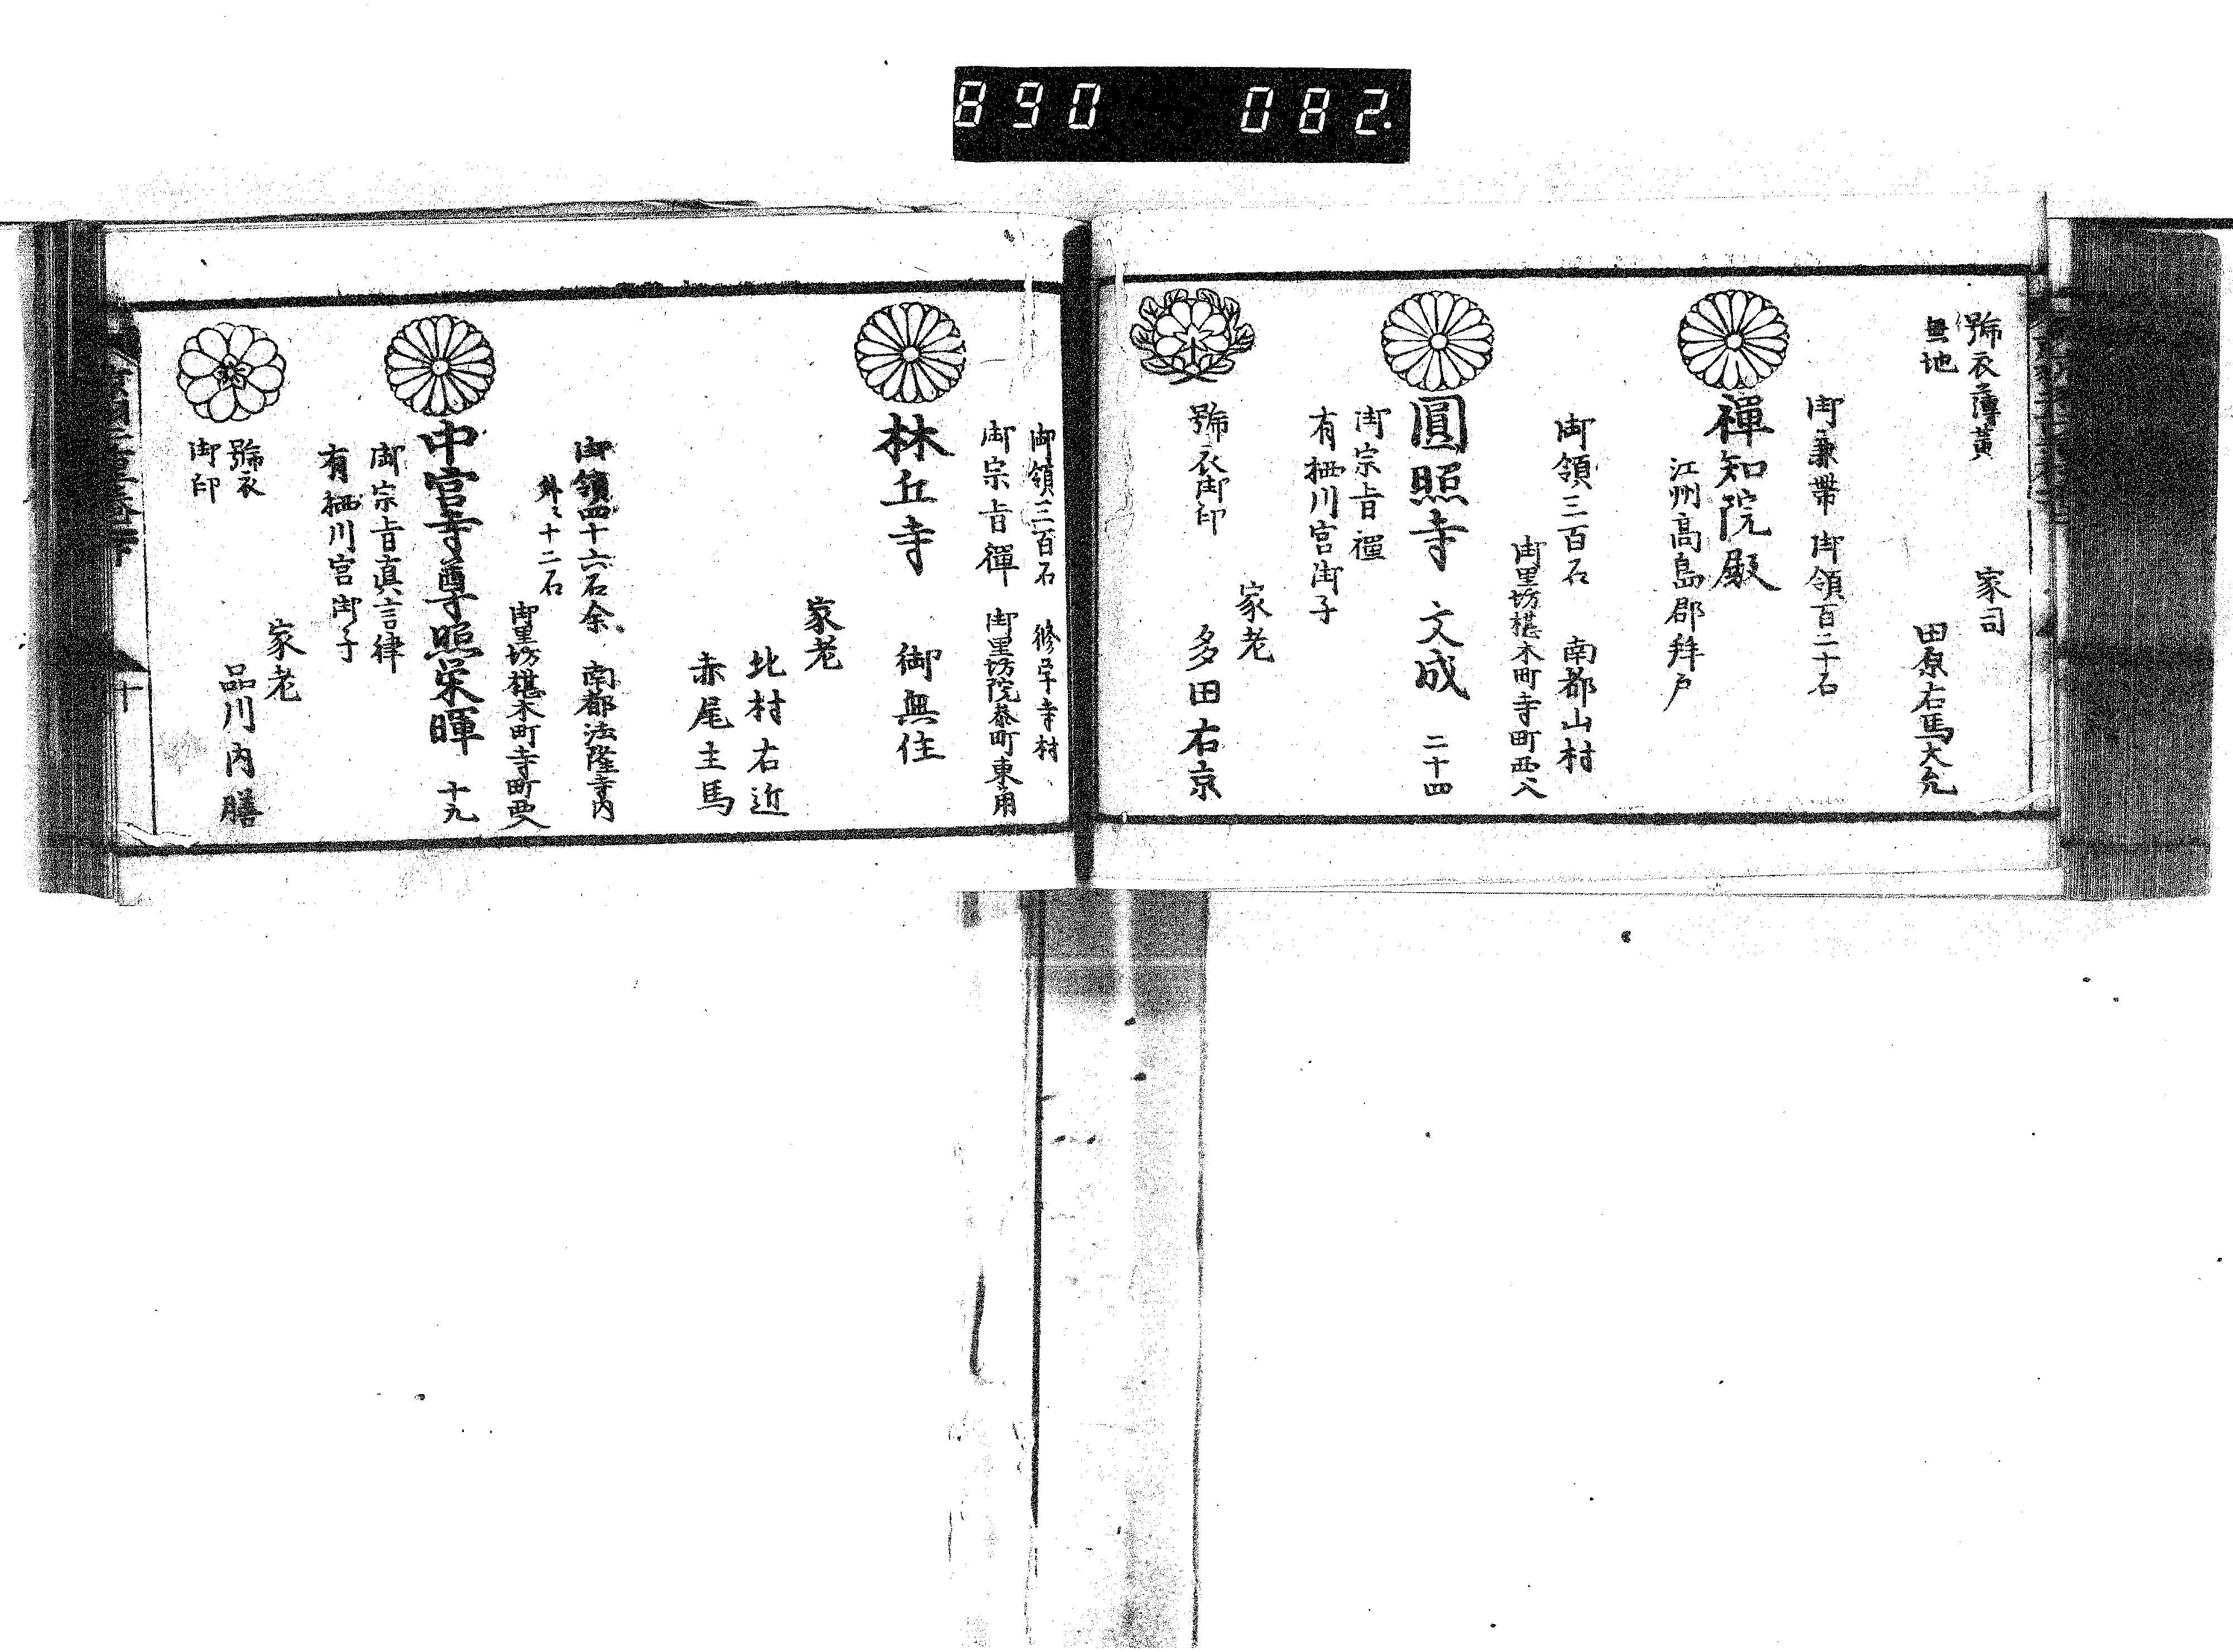 890 082.
號衣薄黄
無地
家司
田原右馬大允
御兼帶 御領百二十石
禪知院殿
江州高島郡拜戸
御領三百石 南都山村
御里坊椹木町寺町西入
圓照寺 文成 二十四
御宗旨禪
有栖川宮御子
家老
多田右京
號衣御印
御領三百石 修学寺村
御宗旨禪 御里坊院参町東角
林丘寺 御無住
家老
北村右近
赤尾主馬
御領四十六石余 南都法隆寺内
外ニ十二石
御里坊椹木町寺町西入
中宮寺尊照栄暉 十九
御宗旨真言律
有栖川宮御子
家老
品川内膳
號衣
御印